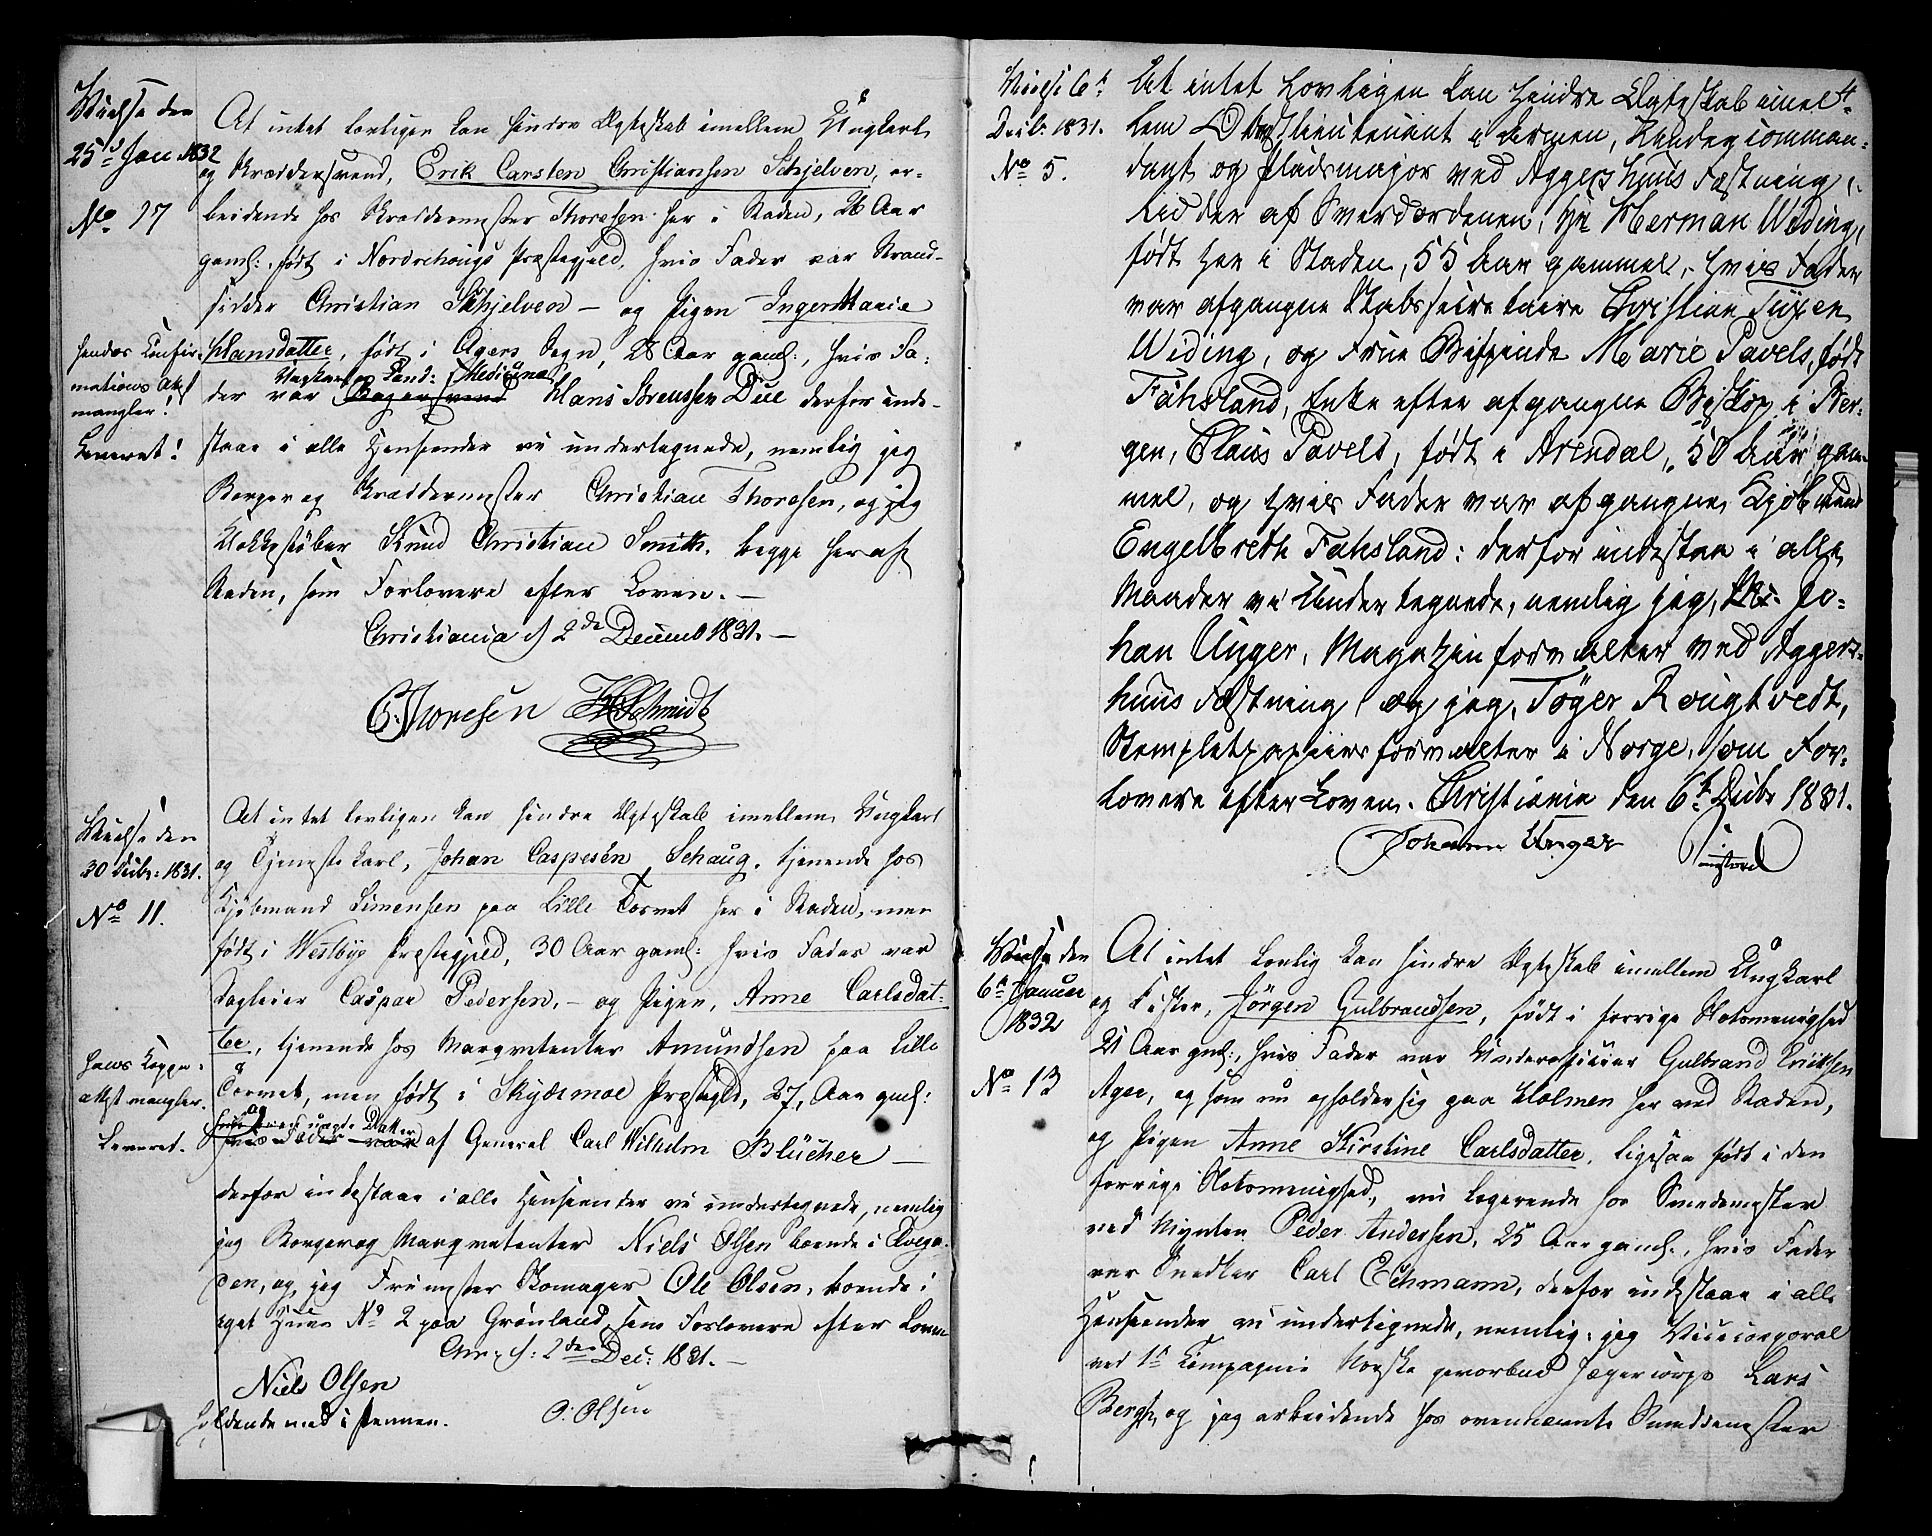 Viede den
25de Jan 1832
No. 17
At intet lovligen kan hindre Ægteskab imellem Ungkarl
og Skræddersvend, Erik Carsten Christiansen Schjelven, ar-
beidende hos Skræddermester Thoresen her i Staden, 26 Aar
gaml:, født i Nordrehougs Præstegjeld, hvis Fader var Strand-
sidder Christian Schjelven – og Pigen Inger Marie
hendes Confir-
mations Att
mangler!
Leveret!
Hansdatter, født i Agers Sogn, 28 Aar gaml:, hvis Fa-
der var Hans Sreussen Due derfor inde-
staae i alle Henseender vi undertegnede, nemlig jeg
Borger og Skræddermester Christian Thoresen, og jeg
Klokkestøber Knud Christian Smith, begge her af
Staden, som Forlovere efter Loven. –
Christiania d 2de Decemb 1831. –
C. Thoresen KCSchmidt
Viede den
30 Decbr: 1831.
No 11.
At intet lovligen kan hindre Ægteskab imellem Ungkarl
og Tjenestekarl, Johan Caspersen Schaug, tjenende hos
Kjøbmand Simensen paa Lille Torvet her i Staden, men
født i Westbye Præstegjeld, 30 Aar gaml: hvis Fader var
Dagleier Caspar Pedersen, – og Pigen, Anne Carlsdat-
ter, tjenende hos Marqvetenter Amundsen paa Lille
hans Koppe-
attest mangler.
Leveret.
Torvet, men født i Skydsmoe Præstegld, 27, Aar gml:
af General Carl Wilhelm Blücher –
derfor indestaae i alle Henseender vi undertegnede, nemlig
jeg Borger og Marqvetenter Niels Olsen boende i
den, og, jeg Frimester Skomager Ole Olsen, boende i
eget Huus No 2 paa Grønland, som Forlovere efter Loven
Chr. d: 2den Dec: 1831. –
Niels Olsen
holdende med i Pennen.
O: Olsen
Viede 6t
Decbr: 1831.
No 5.
At intet Lovligen kan Hindre Ægteskab imel-
lem Oberstlieutenant i Armeen, Vice commen-
dant og Pladsmajor ved Aggershuus Fæstning,
Ridder af Sværdordenen, Hr Herman Widing,
født her i Staden, 55 Aar gammel, hvis Fader
var afgangne Etatssecretaire Christian Tuxen
Widing, og Frue Bispinde Marie Pavels, født
Fahsland, Enke efter afgangne Biskop i Ber-
gen, Claus Pavels, født i Arendal, 50 Aar gam-
mel, og hvis Fader var afgangne Kjøbmand
Engelbreth Fahsland: derfor indestaa i alle
Maader vi Undertegnede, nemlig jeg, Jo-
han Unger, Magazinforvalter ved Aggers-
huus Fæstning og jeg, Tøger Rougtvedt,
Stempletpapiirsforvalter i Norge, som For-
lovere efter Loven. Christiania den 6t Decbr 1831.
Johan Unger
Viede den
6t Januar
1832
No 13
At intet Lovlig kan hindre Ægteskab imellem Ungkarl
og Fisker, Jörgen Gulbrandsen, født i forrige Slotsmenighed
21 Aar gml:, hvis Fader var Underofficier Gulbrand Eriksen
Ager, og som nu opholder sig paa Holmen her ved Staden,
og Pigen Anne Kirstine Carlsdatter, ligesaa født i den
forrige Slotsmenighed, nu logerende hos Smedemester
ved Mynten Peder Andersen, 25 Aar gaml:, hvis Fader
var Snedker Carl Echmann, derfor indestaae i alle
Henseender vi undertegnede, nemlig: jeg Vicecorporal
ved 1te Compagnie Norske gevorbne Jægercorps Lars
Bergh, og jeg arbeidende hos ovennævnte Smeddemester